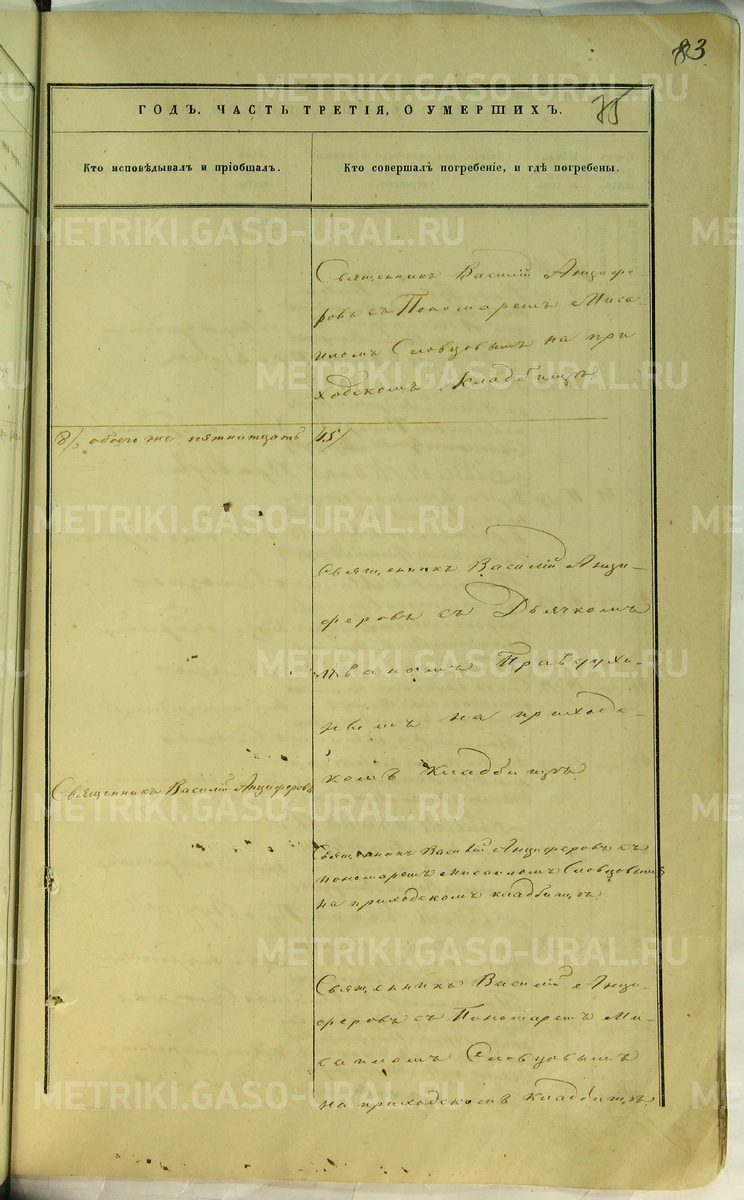 83
75
ГОДЪ. ЧАСТЬ ТРЕТІЯ, О УМЕРШИХЪ.
Кто исповѣдывалъ и пріобщалъ.
Кто совершалъ погребеніе, и гдѣ погребены.
Священникъ Василій Анцифе-
ровъ съ Пономаремъ Миса-
иломъ Словцовымъ на при
ходскомъ Кладбищѣ
8/, обоего же пятнатцать 15/.
Священникъ Василій Анци-
феровъ съ Дьячкомъ
Иваномъ
на приходс-
комъ кладбищѣ
Священникъ Василій Анциферовъ
Священникъ Василій Анциферовъ съ
пономаремъ Мисаиломъ Словцовымъ
на приходскомъ кладбищѣ.
Священникъ Василій Анци-
феровъ съ Пономаремъ Ми-
саиломъ Словцовымъ
на приходскомъ кладбищѣ.
METRIKI.GASO-URAL.RU